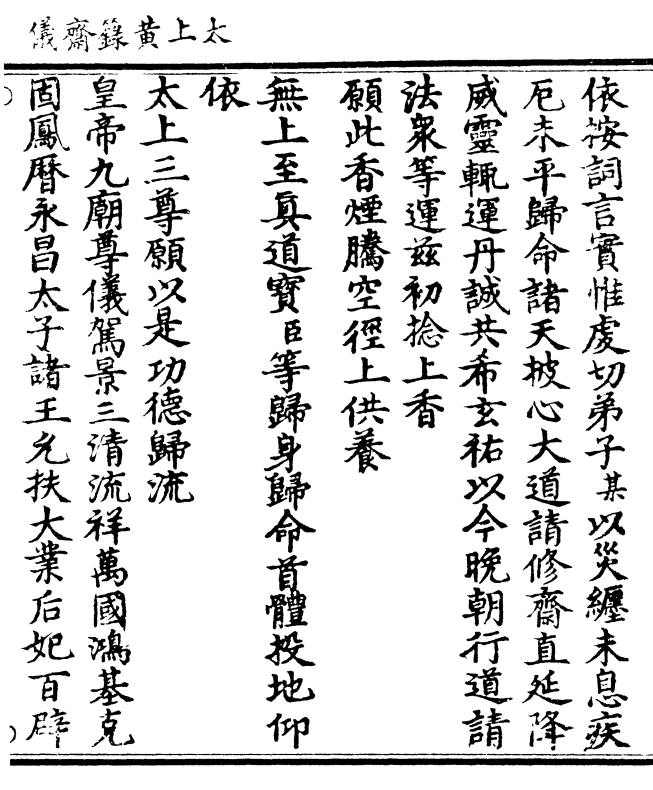 太上黃籙齋儀
依按詞言實惟虔切弟子某以災纏未息疾
厄未平歸命諸天披心大道請修齋直延降
威靈輒運丹誠共希玄祐以今晚朝行道請
法衆等運茲初捻上香
願此香煙騰空徑上供養
無上至真道寶臣等歸身歸命首體投地仰
依
太上三尊願以是功德歸流
皇帝九廟尊儀駕景三清流祥萬國鴻基克
固鳳曆永昌太子諸王允扶大業后妃百辟